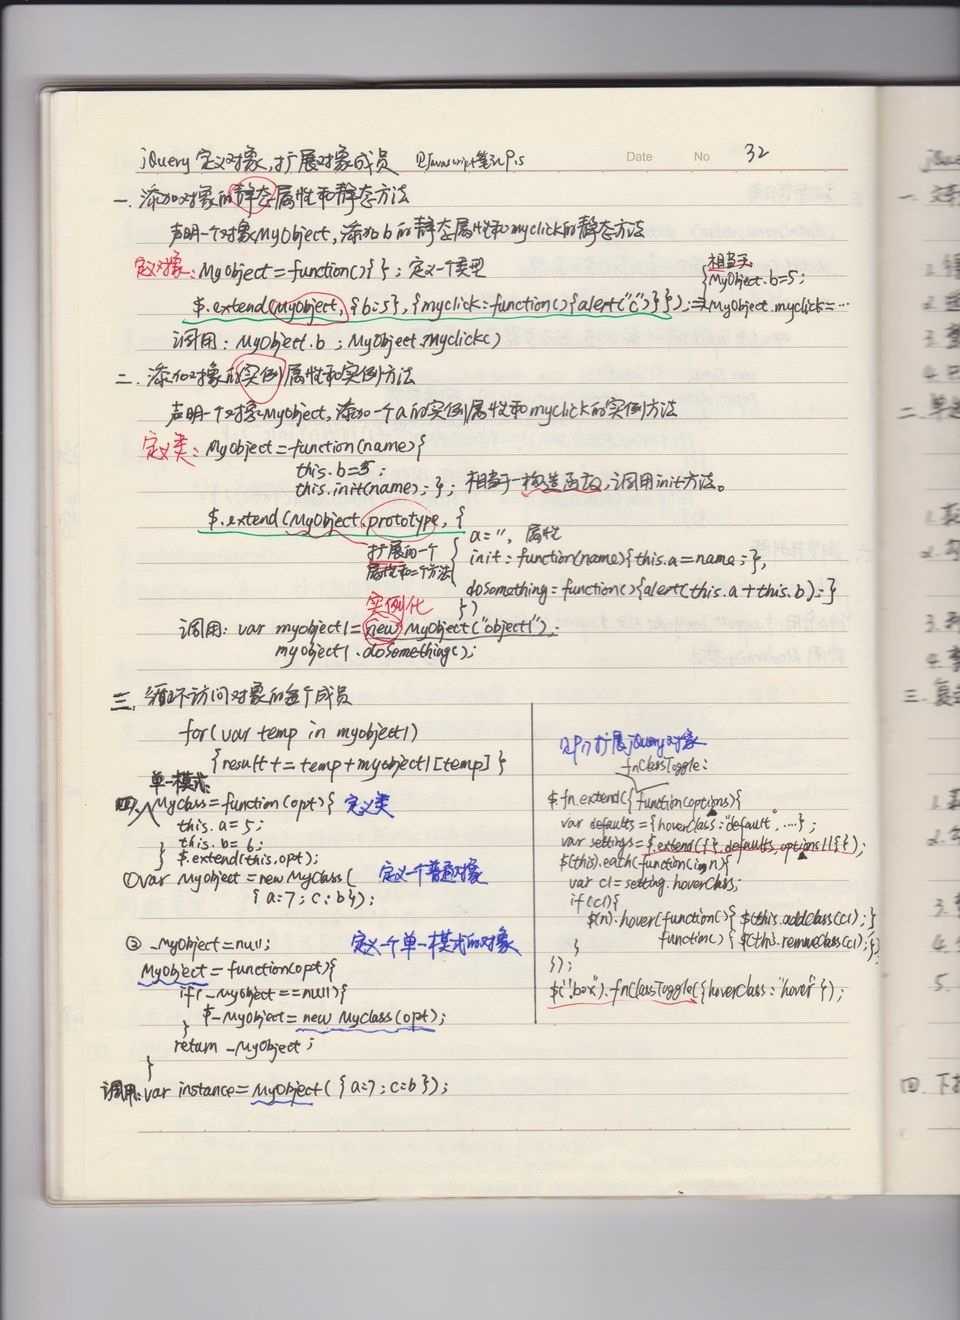 jQuery 定义对象,扩展对象成员 见Javascript笔记P15 Date No 32
一. 添加对象的静态属性和静态方法
声明一个对象MyObject,添加b的静态属性和myclick的静态方法
定义对象: MyObject=function(){}; 定义一个类型
相当于:
MyObject.b=5;
$.extend(MyObject,{b:5},{myclick:function(){alert("c")}});⇒MyObject.myclick=…
调用: MyObject.b ; MyObject.myclick()
二. 添加对象的实例属性和实例方法
声明一个对象MyObject,添加一个a的实例属性和myclick的实例方法
定义类: MyObject=function(name){
this.b=5;
this.init(name);}; 相当于一构造函数,调用init方法。
$.extend(MyObject.prototype,{
a='', 属性
扩展的一个
属性和二个方法
init:function(name){this.a=name;},
doSomething=function(){alert(this.a+this.b);}
})
实例化
调用: var myobject1=new MyObject("object1");
myobject1.doSomething();
三. 循环访问对象的每个成员
for(var temp in myobject1)
{result+=temp+myobject1[temp]}
单一模式:
四. MyClass=function(opt){ 定义类
this.a=5;
this.b=6;
$.extend(this,opt);
}
①var MyObject=new MyClass( 定义一个普通对象
{a:7;c:b});
② _MyObject=null; 定义一个单一模式的对象
MyObject=function(opt){
if(_MyObject==null){
$_MyObject=new MyClass(opt);
}
return _MyObject;
}
调用:var instance=MyObject({a=7;c=b});
见P17扩展jQuery对象
fnClassToggle:
$.fn.extend({function(options){
var defaults={hoverClass:"default",…};
var settings=$.extend({},defaults,options||{});
$(this).eath(function(i,n){
var cl=setting.hoverClass;
if(cl){
$(n).hover(function(){$(this.addClass(cl);}
function(){$(this).removeClass(cl);})
}
});
$('.box').fnClassToggle({hoverClass:"hover"});
一. 文
二. 单选
三. 复选
四. 下拉